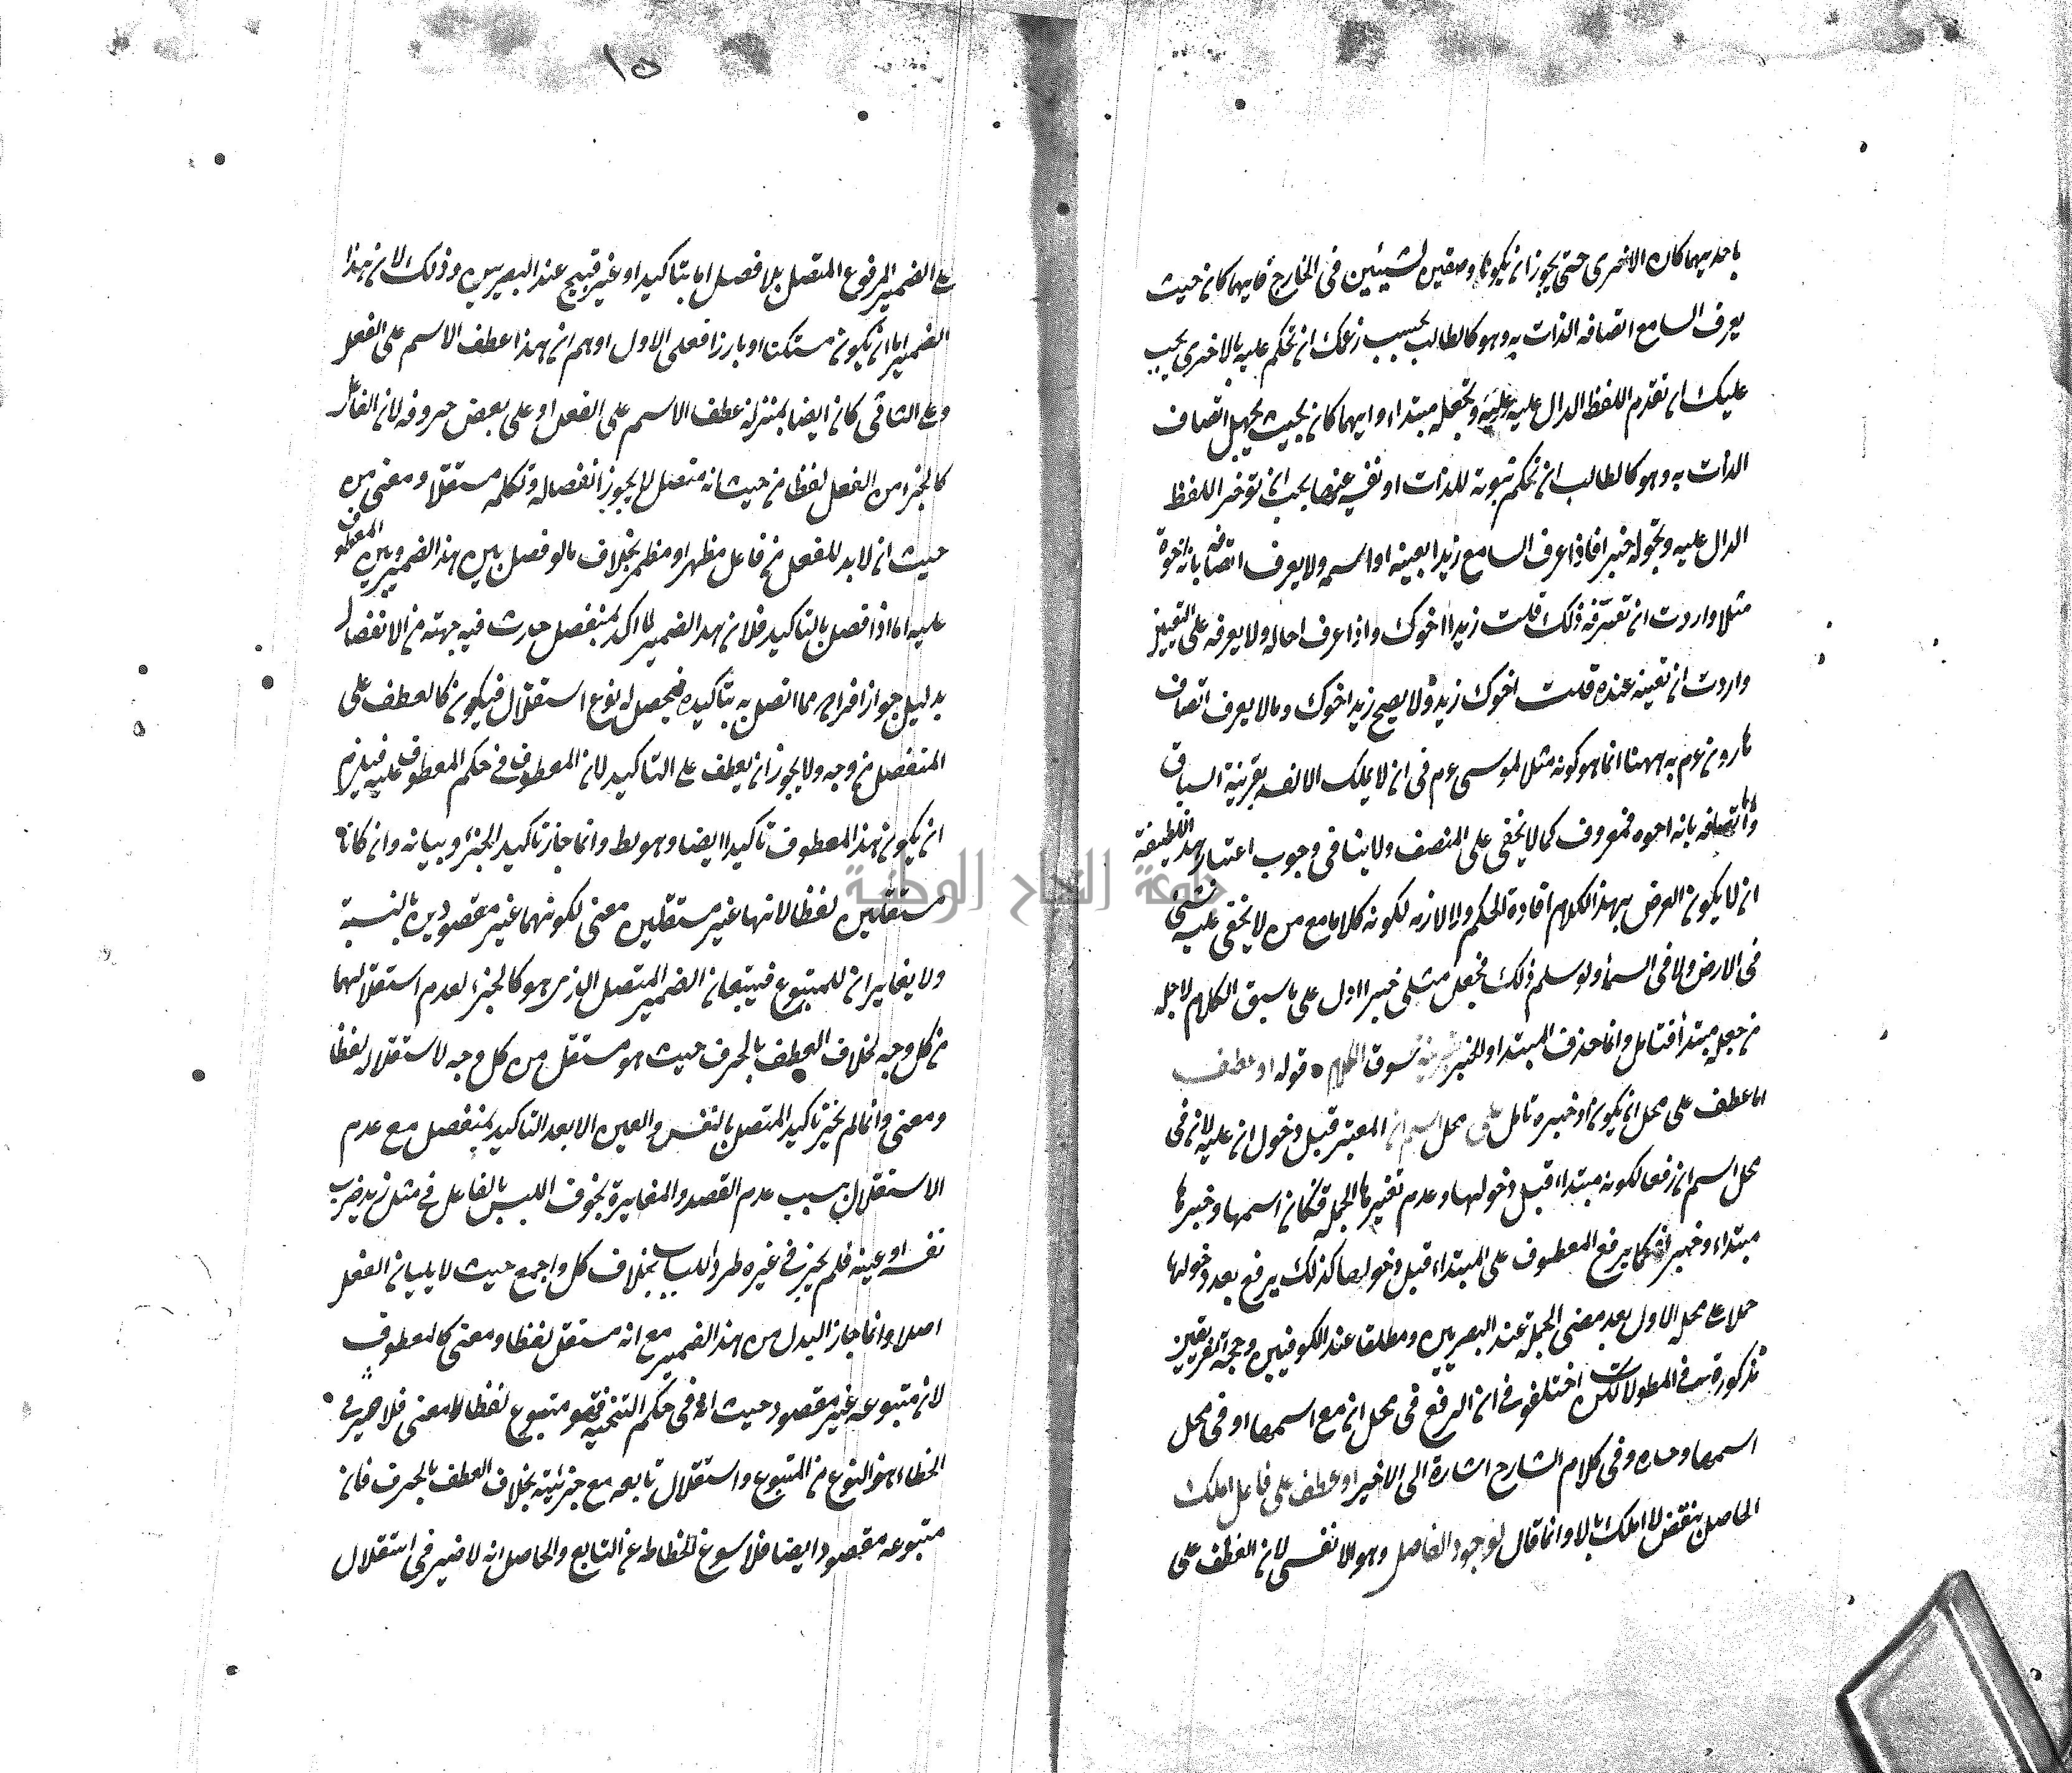 باحديهما كان الاخرى حتى يجوز ان يكونا وصفين لشيئين فى الخارج فايهما كان حيث
يعرف السامع اتصافه الذات به وهو كالطالب بحسب زعمك ان تحكم عليه بالاخرى يجب
عليك ان تقدم اللفظ الدال عليه وتجعله مبتداء وايهما كان بحيث يجهل اتصاف
الذات به وهو كالطالب ان تحكم ثبوته للذات او نفيه عنها يجب ان توخر اللفظ
الدال عليه وتجوله خبرا فاذا عرف السامع زيدا بعينه او اسمه ولا يعرف اتصافه بانه اخوه
مثلا واردت ان تعرّفه ذلك قلت زيد اخوك واذا عرف اخاله ولا يعرفه على التعيين
واردت ان تعينه عنده قلت اخوك زيد ولا يصح زيد اخوك وما لا يعرف اتصاف
هارون ع م به ههنا انما هو كونه مثلا لموسى ع م فى ان لا يملك الا نفسه بقرينة السياق
واتصافه بانه اخوه فمعروف كما لا يخفى على المنصف ولا ينافى وجوب اعتبار هذه اللطيفة
ان لا يكون الغرض بهذا الكلام افادة الحكم ولا لازمه لكونه كلاما مع من لا يخفى عليه شئ
فى الارض ولا فى السماء ولو سلم ذلك فجعل مثلى خبرا ادل على ما سيق الكلام لاجله
من جعله مبتدأ فتامل وانما حذف المبتدا والخبر بقرينة سوق الكلام ٥ قوله او عطف
اما عطف على محل ان يكون او خبره تامل على محل اسم ان المعتبر قبل دخول ان عليه لان فى
محل اسم ان رفعا لكونه مبتداء قبل دخولها وعدم تغييرها الجملة فكان اسمها وخبرها
مبتداء وخبرا فكما يرفع المعطوف على المبتداء قبل دخولها كذلك يرفع بعد دخولها
حملا على محله الاول بعد مضى الجملة عند البصريين ومطلقا عند الكوفيين وحجة الفريقين
مذكورة فى المطولات لكن اختلفوا فى ان الرفع فى محل ان مع اسمها او فى محل
اسمها وحده وفى كلام الشارح اشارة الى الاخير او عطف على فاعل املك
الحاصل بنقض لا املك بالا وانما قال لوجود الفاصل وهو الا نفسى لان العطف على
على الضمير المرفوع المتصل بلا فصل اما بتاكيد او غير قبيح عند البصريين وذلك لان هذا
الضمير اما ان يكون مستكنا او بارزا فعلى الاول اوهم ان هذا عطف الاسم على الفعل
وعلى الثانى كان ايضا بمنزلة عطف الاسم على الفعل او على بعض حروفه لان الفاعل
كالجزء من الفعل لفظا من حيث انه متصل لا يجوز انفصاله وتكلمه مستقلا ومعنى من
حيث ان لا بد للفعل من فاعل مظهر او مضمر بخلاف ما لو فصل بين هذا الضمير وبين المعطوف
عليه اما اذا فصل بالتاكيد فلان هذا الضمير لما اكد بمنفصل حدث فيه جهة من الانفصال
بدليل جواز افراده مما اتصل به بتاكيده فيحصل له نوع استقلال فيكون كالعطف على
المنفصل من وجه ولا يجوز ان يعطف على التاكيد لان المعطوف فى حكم المعطوف عليه فيلزم
ان يكون هذا المعطوف تاكيدا ايضا وهو بط وانما جاز تاكيد الجزء وبيانه وان كانا
مستقلين لفظا لانهما غير مستقلين معنى لكونهما غير مقصودين بالنسبة
ولا يغايران للمتبوع فيتبعان الضمير المتصل الذى هو كالجزء لعدم استقلالهما
من كل وجه بخلاف العطف بالحرف حيث هو مستقل من كل وجه لاستقلاله لفظا
ومعنى وانما لم يجز تاكيد المتصل بالنفس والعين الا بعد التاكيد بمنفصل مع عدم
الاستقلال بسبب عدم القصد والمغايرة لخوف اللبس بالفاعل فى مثل زيد ضرب
نفسه او عينه فلم يجز فى غيره طردا للباب بخلاف كل واجمع حيث لا يليان الفعل
اصلا وانما جاز البدل من هذا الضمير مع انه مستقل لفظا ومعنى كالمعطوف
لان متبوعه غير مقصود حيث انه فى حكم التنحية فهو متبوع لفظا لا معنى فلا ضير فى
انحطاط هذا النوع من المتبوع واستقلال تابعه مع جزئيته بخلاف العطف بالحرف فان
متبوعه مقصود ايضا فلا يسوغ انحطاطه عن التابع والحاصل انه لا ضير فى استقلال
١٥
جامعة النجاح الوطنية